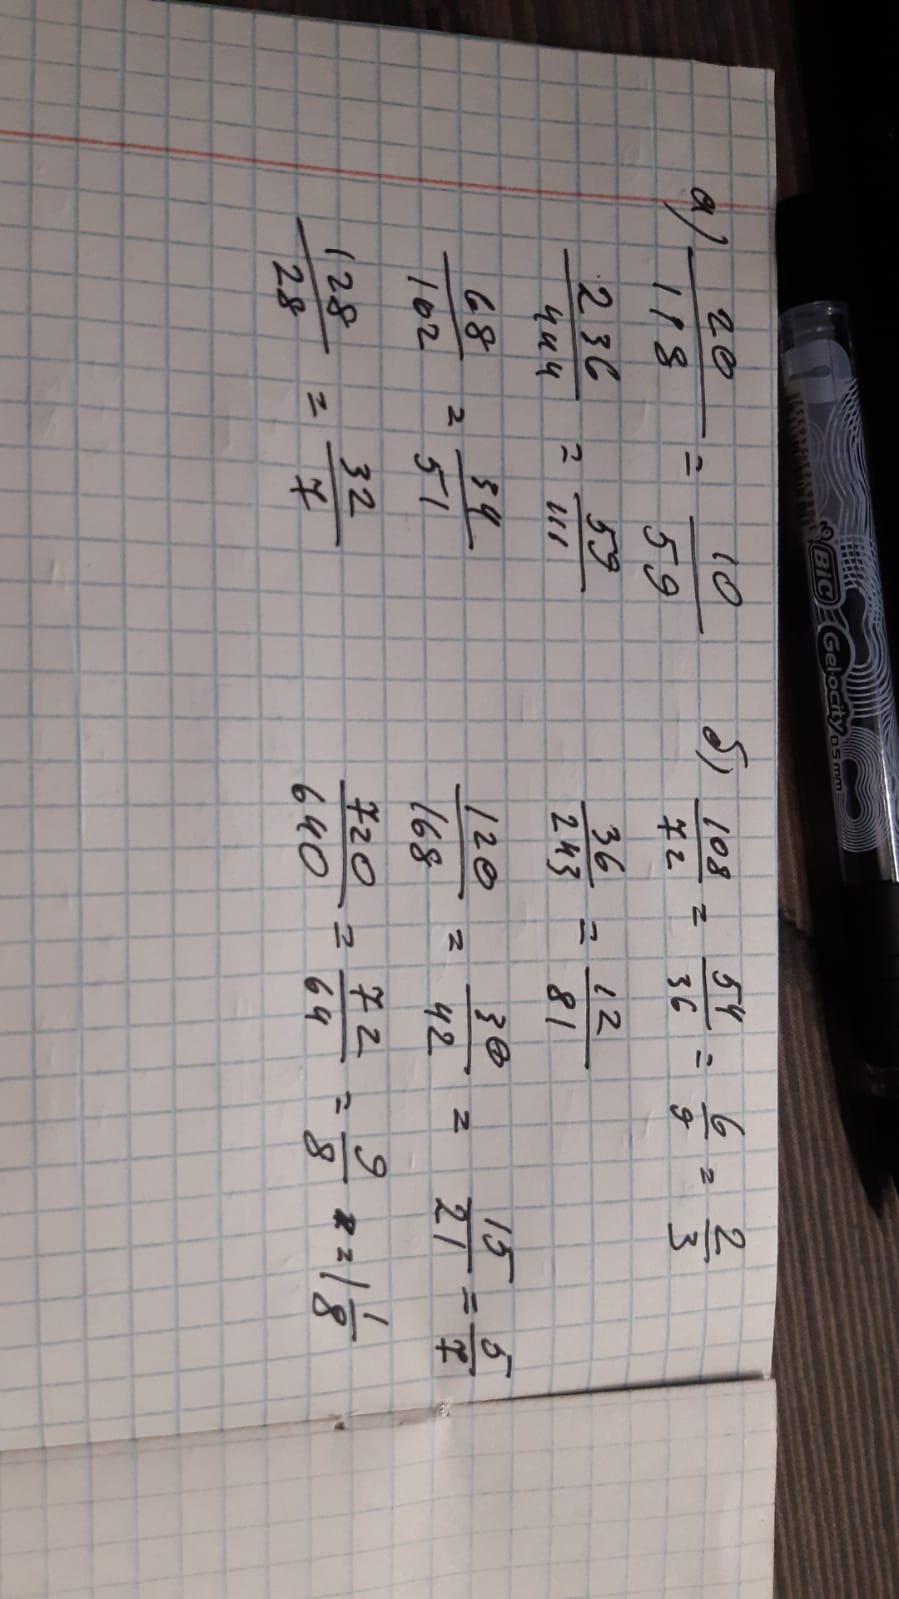 а) 20/118 = 10/59
236/444 = 59/111
68/102 = 34/51
128/28 = 32/7
б) 108/72 = 54/36 = 6/9 = 2/3
36/243 = 12/81
120/168 = 30/42 = 15/21 = 5/7
720/640 = 72/64 = 9/8 = 1 1/8
BIC Gelocity 0.5 mm